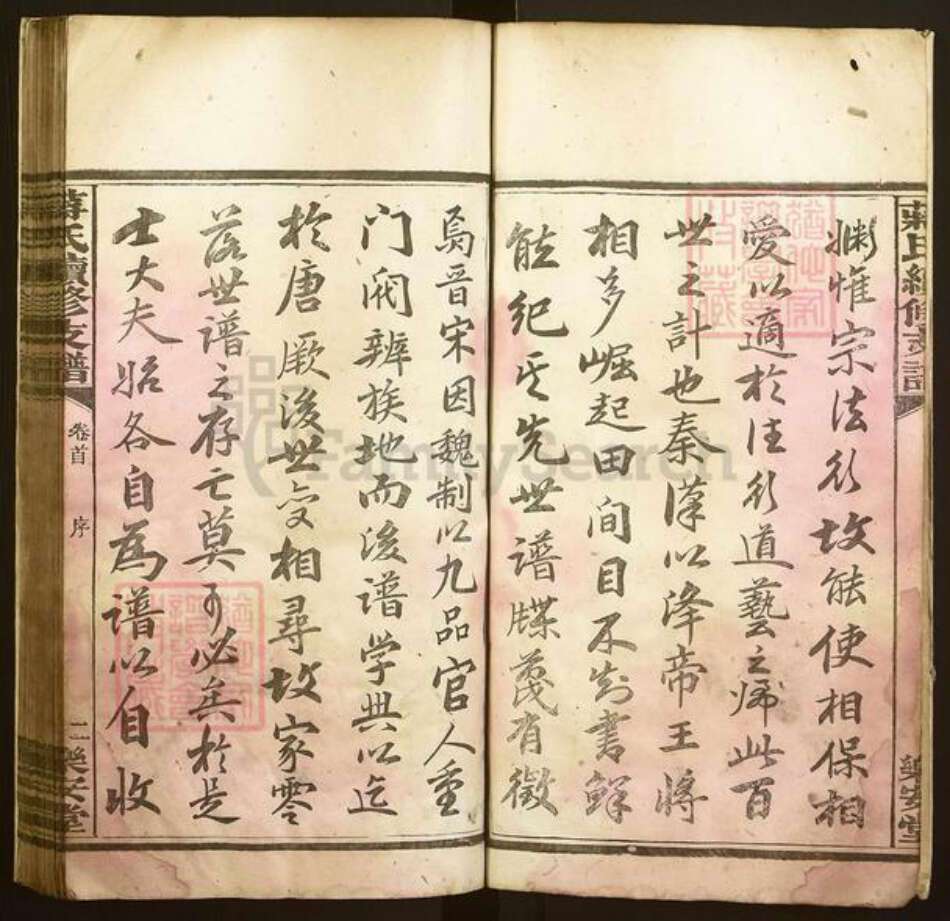 蔣氏續修支譜
樂安堂
淵惟宗法行故能使相保相
愛以適於往行道藝之歸此百
世之計也秦漢以降帝王將
相多崛起田间目不知書鮮
能纪其先世谱牒蔑有徵
焉晋宋因魏制以九品官人重
门阀辨族地而後谱学興以迄
於唐厥後世变相尋故家零
落世谱之存亡莫可必矣於是
士大夫始各自為谱以自收
蔣氏續修支譜
卷首
序
二
樂安堂
FamilySearch